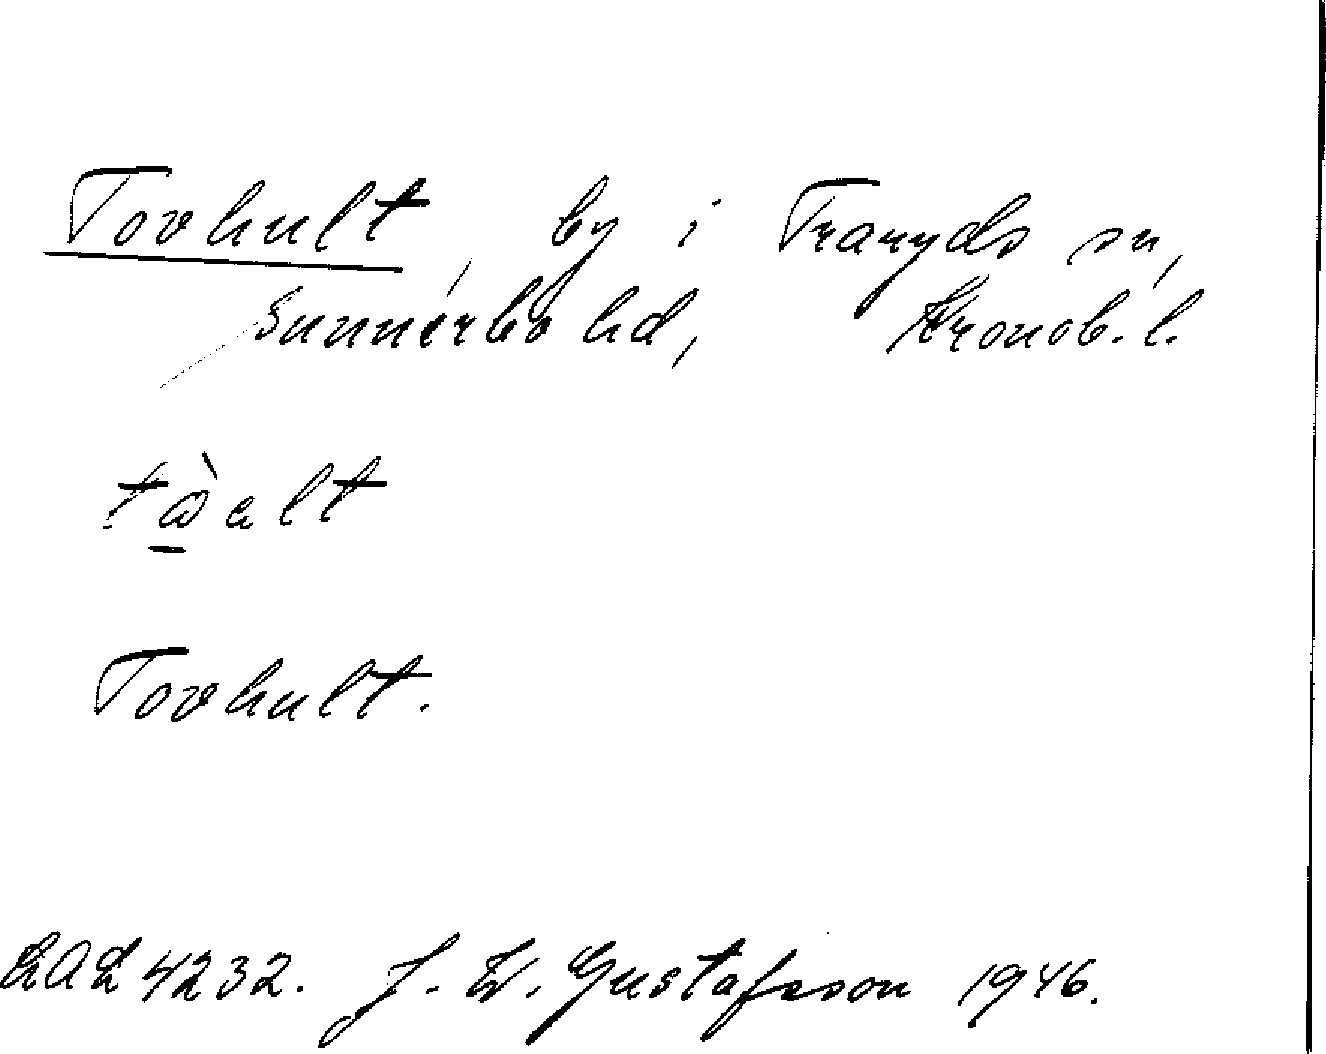 Tovhult, by i Traryds sn,
Sunnerbo hd, Kronob. l.
tὼalt
Tovhult.
LAL 4232. J. W. Gustafsson 1946.